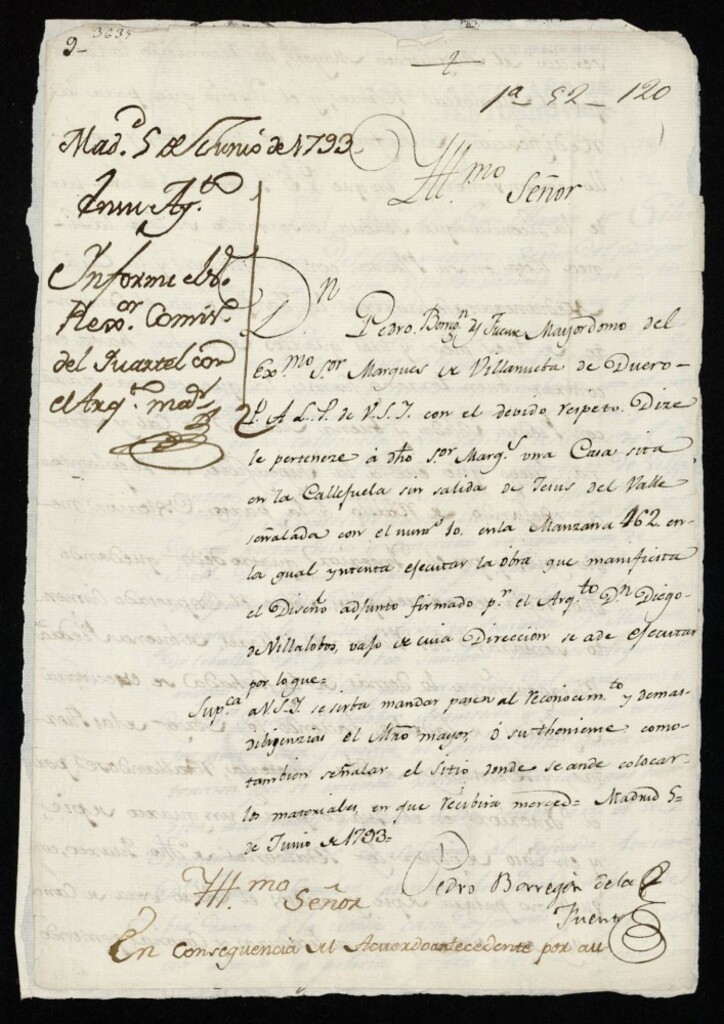 9- 3635
1ª 52- 120
Mad.d 5 de Junio de 1793
Ill.mo Señor
Informe el
Comis.
del Quartel con
el Arq.to mayor
Dn Pedro de Fuente Mayordomo del
Exmo Sor Marques de Villanueba de Duero-
P. A L. P. de V.S.I. con el devido respeto. Dize
le perteneze â dho S.or Marq.s una Casa sita
en la Callejuela sin salida de Jesus del Valle
señalada con el num.o 10. enla Manzana 462. en-
la qual yntenta ejecutar la obra que manifiesta
el Diseño adjunto firmado p.r el Arq.to Dn Diego
de Villalobos, vajo de cuia Direccion se a de ejecutar
por lo que=
Sup.ca a V.S.I. se sirba mandar pasen al reconocim.to y demas
diligenzias el Mro mayor, ô su theniente como-
tambien señalar el sitio donde se ande colocar
los materiales, en que recibira merced= Madrid 5=
de Junio de 1793=
Ill.mo Señor
Pedro Borregon de la
Fuente
En consequencia del Acuerdo antecedente por au